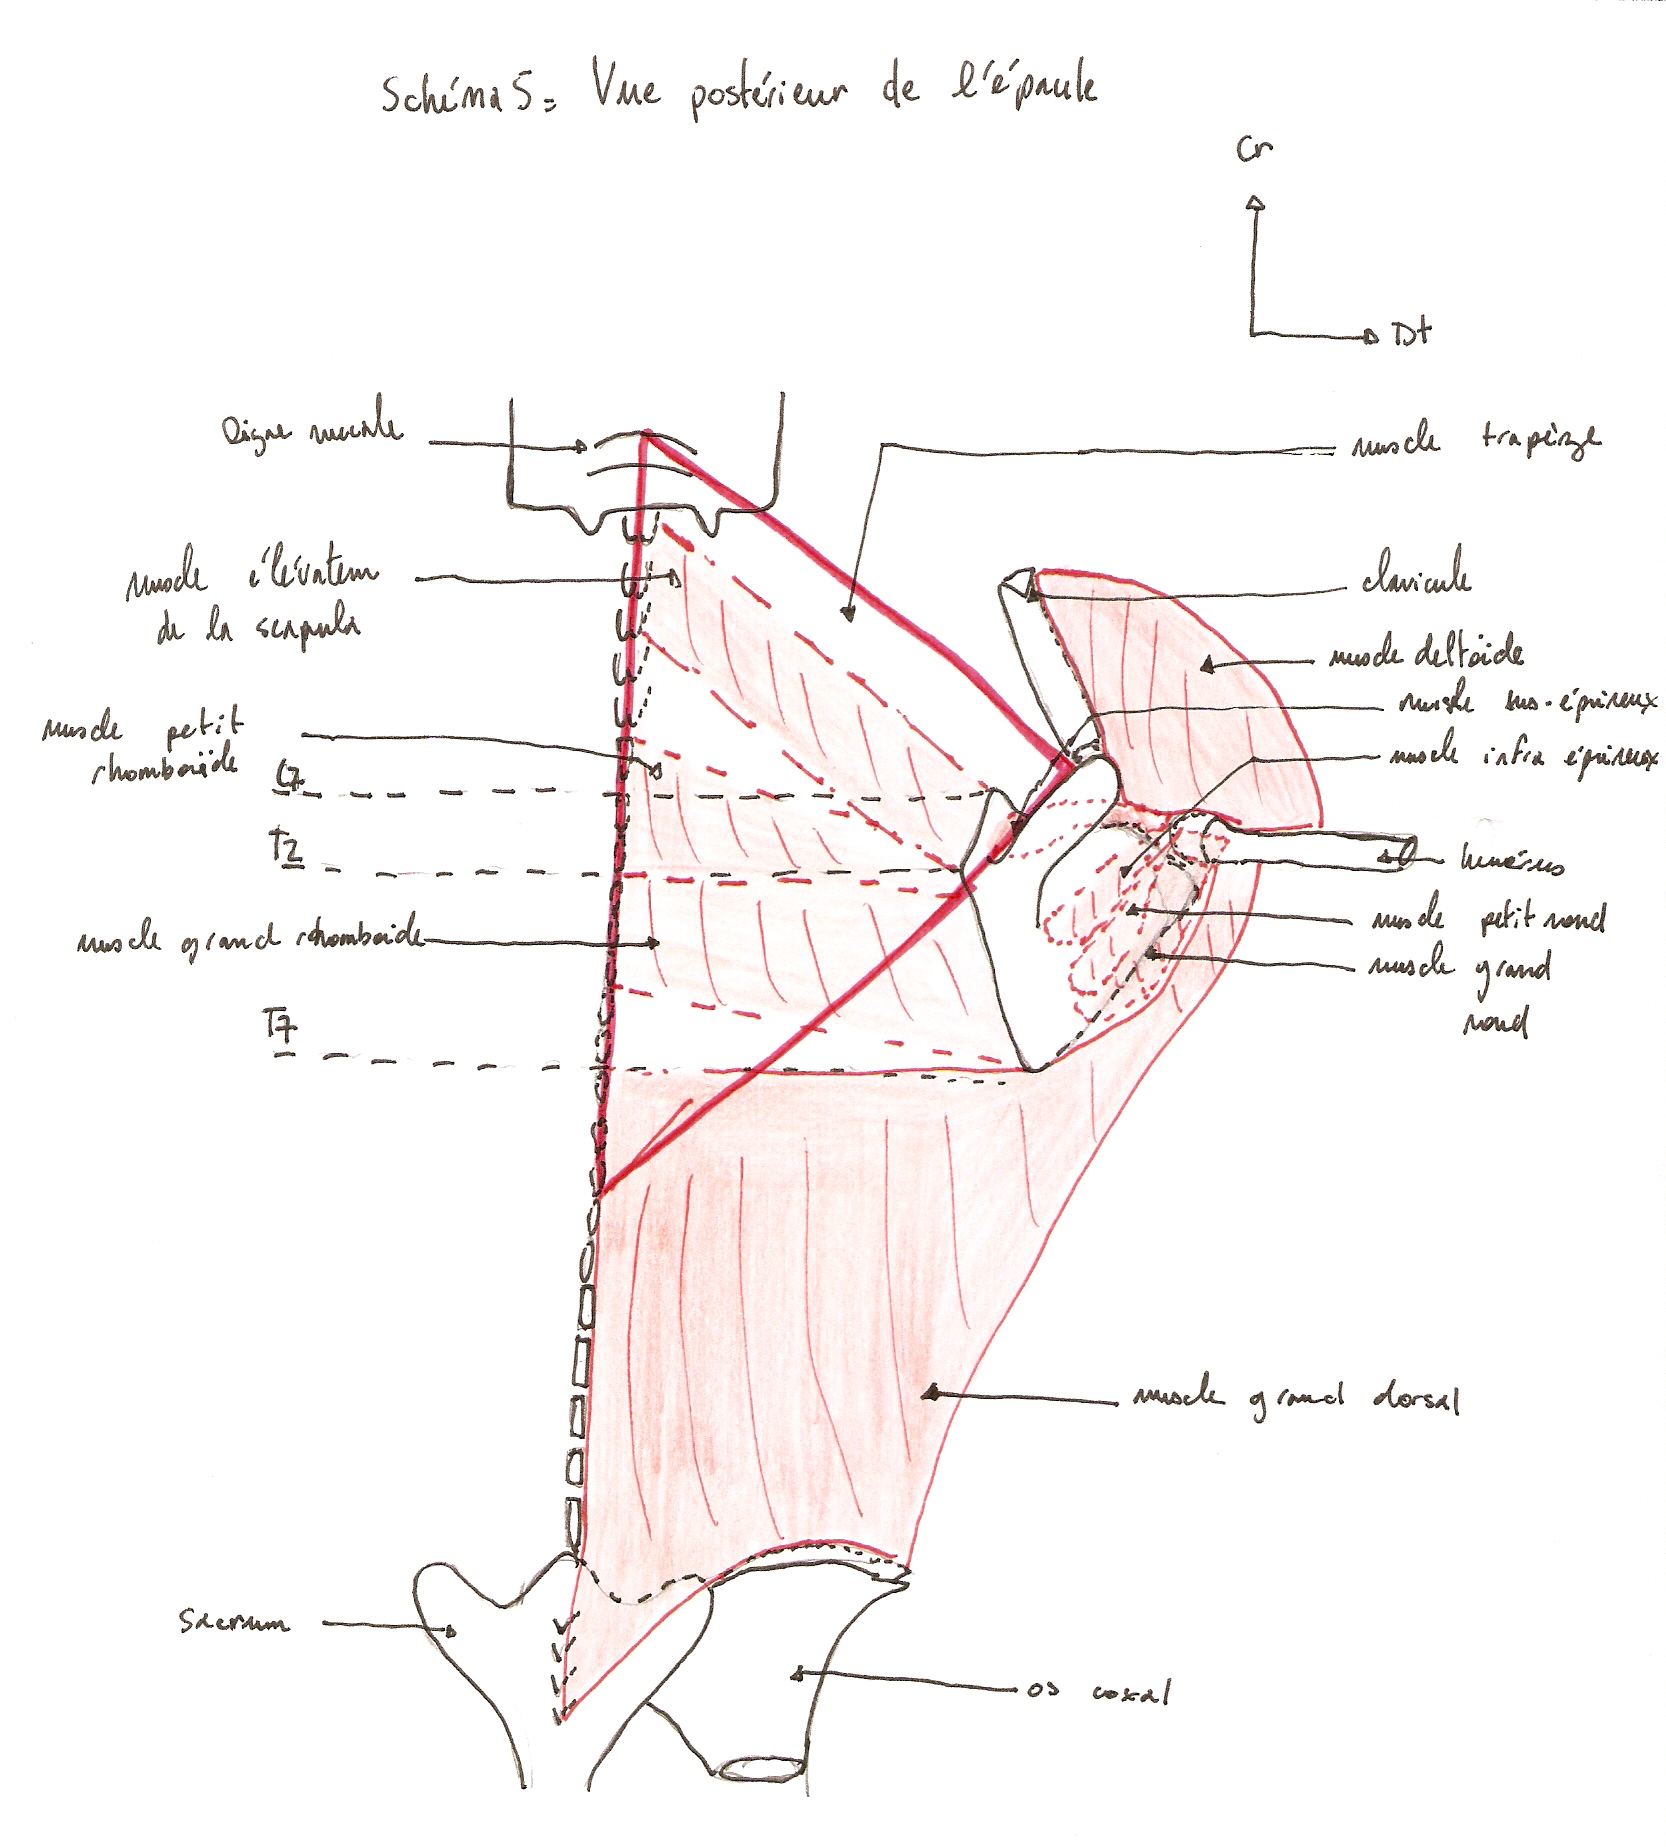 Schéma 5 = Vue postérieur de l'épaule
Cr
Dt
Ligne nucale
muscle trapèze
muscle élévateur
de la scapula
clavicule
muscle deltoïde
muscle sus-épineux
muscle petit
rhomboïde
muscle infra épineux
C7
T2
humérus
muscle petit rond
muscle grand rhomboide
muscle grand
rond
T7
muscle grand dorsal
Sacrum
os coxal